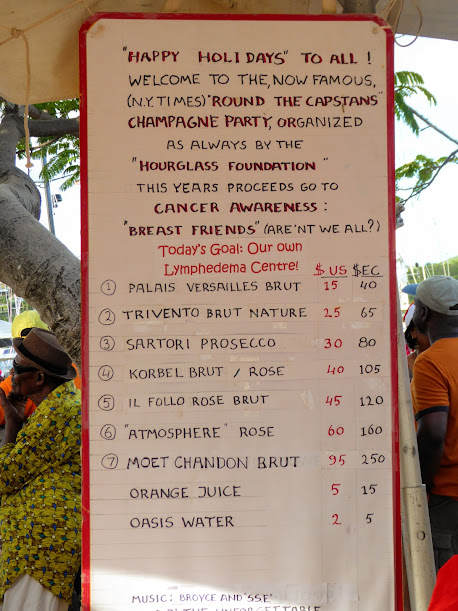 "HAPPY HOLIDAYS" TO ALL !
WELCOME TO THE, NOW FAMOUS,
(N.Y. TIMES) "ROUND THE CAPSTANS"
CHAMPAGNE PARTY, ORGANIZED
AS ALWAYS BY THE
"HOURGLASS FOUNDATION"
THIS YEARS PROCEEDS GO TO
CANCER AWARENESS :
"BREAST FRIENDS" (ARE'NT WE ALL?)
Today's Goal: Our own
Lymphedema Centre!
$US $EC
1 PALAIS VERSAILLES BRUT 15 40
2 TRIVENTO BRUT NATURE 25 65
3 SARTORI PROSECCO 30 80
4 KORBEL BRUT / ROSE 40 105
5 IL FOLLO ROSE BRUT 45 120
6 "ATMOSPHERE" ROSE 60 160
7 MOET CHANDON BRUT 95 250
ORANGE JUICE 5 15
OASIS WATER 2 5
MUSIC: BROYCE AND "S.S.E"
THE UNFORGETTABLE